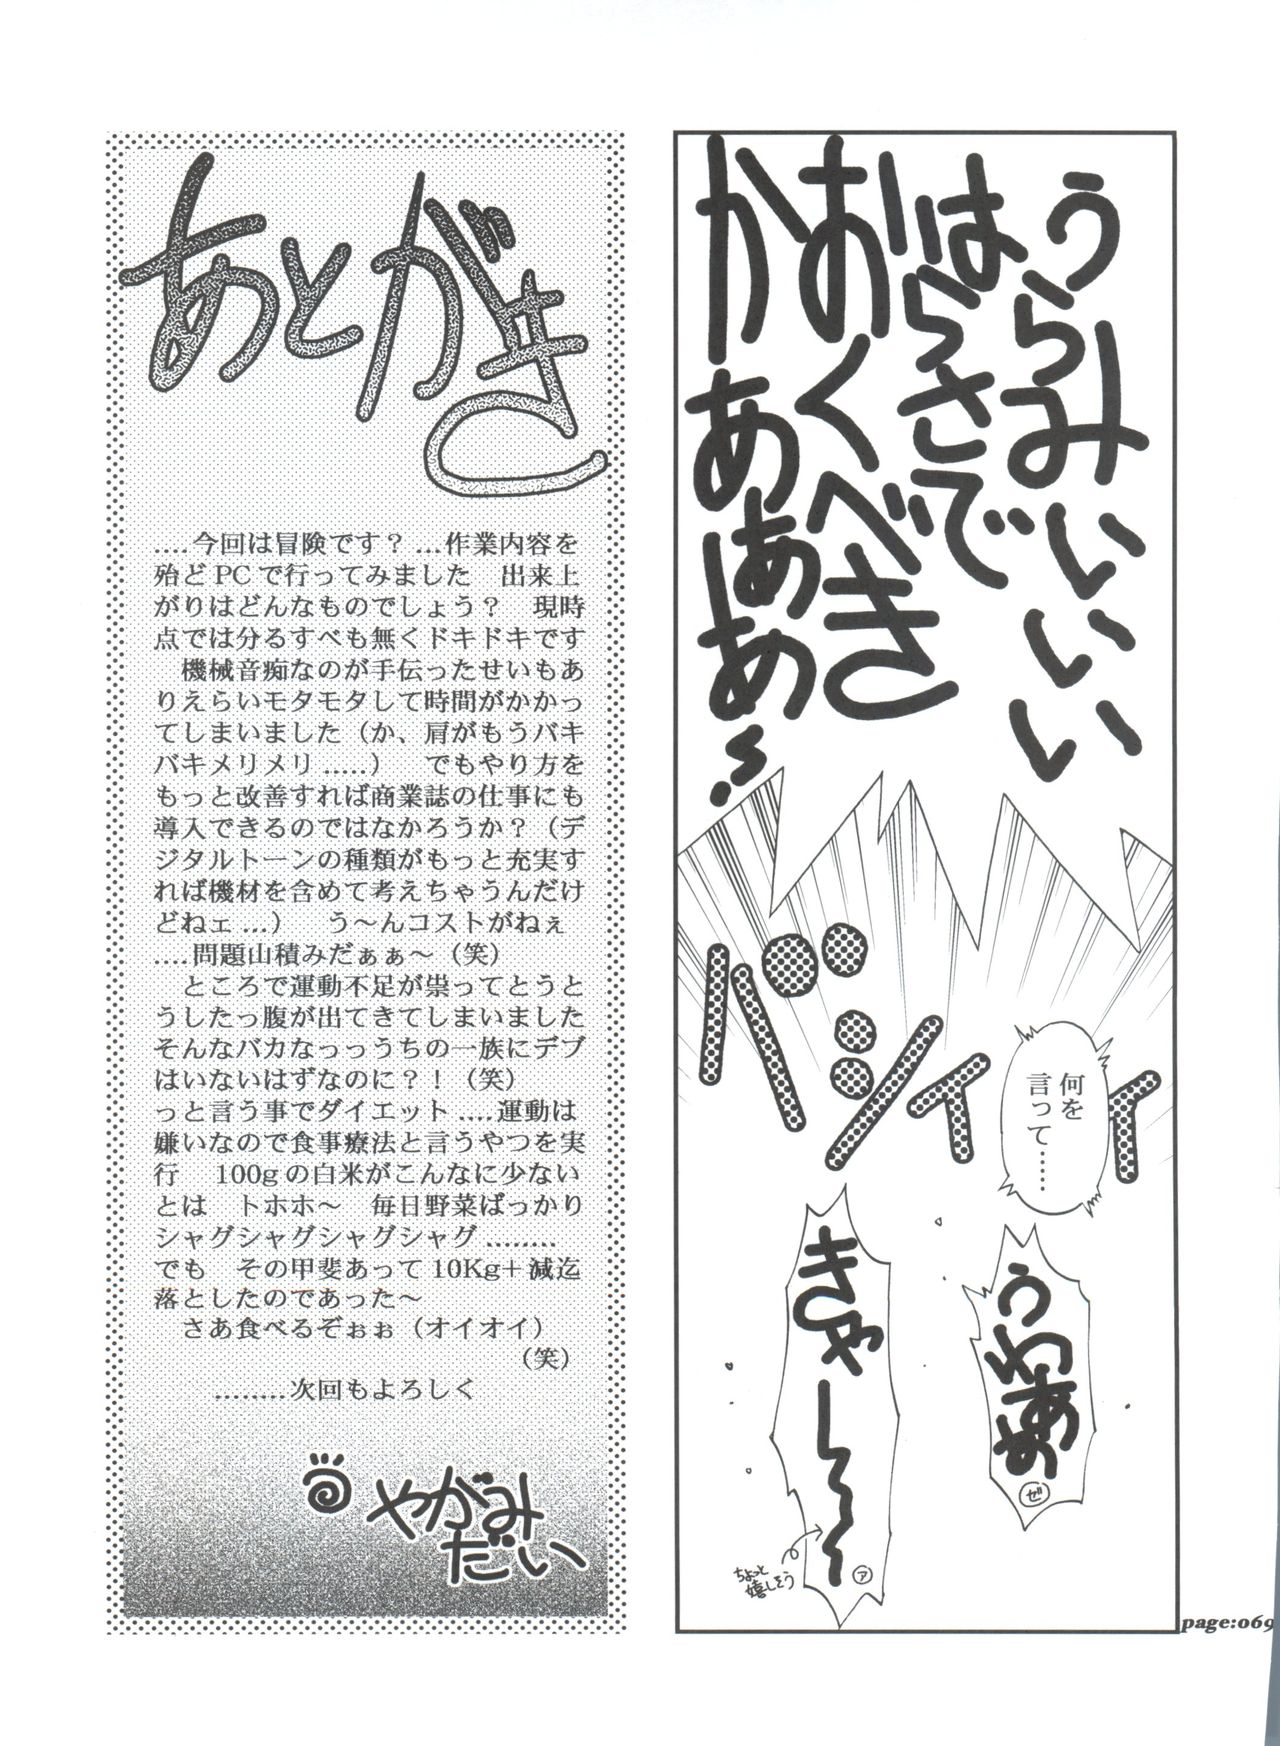 うらみいいい
はらさで
おくべき
かあぁあぁ…
バシィィ
何を
言って……
うわああ
ゼ
きゃー～～
ア
ちょっと
嬉しそう
あとがき
....今回は冒険です？ ...作業内容を
殆どPCで行ってみました　出来上
がりはどんなものでしょう？　現時
点では分るすべも無くドキドキです
　機械音痴なのが手伝ったせいもあ
りえらいモタモタして時間がかかっ
てしまいました（か、肩がもうバキ
バキメリメリ.....）　でもやり方を
もっと改善すれば商業誌の仕事にも
導入できるのではなかろうか？（デ
ジタルトーンの種類がもっと充実す
れば機材を含めて考えちゃうんだけ
どねェ...）　う～んコストがねぇ
....問題山積みだぁぁ～（笑）
　ところで運動不足が祟ってとうと
うしたっ腹が出てきてしまいました
そんなバカなっっうちの一族にデブ
はいないはずなのに？！（笑）
っと言う事でダイエット....運動は
嫌いなので食事療法と言うやつを実
行　100gの白米がこんなに少ない
とは　トホホ～　毎日野菜ばっかり
シャグシャグシャグシャグ.........
でも　その甲斐あって10Kg＋減迄
落としたのであった～
　さあ食べるぞぉぉ（オイオイ）
（笑）
.........次回もよろしく
やがみ
だい
page:069